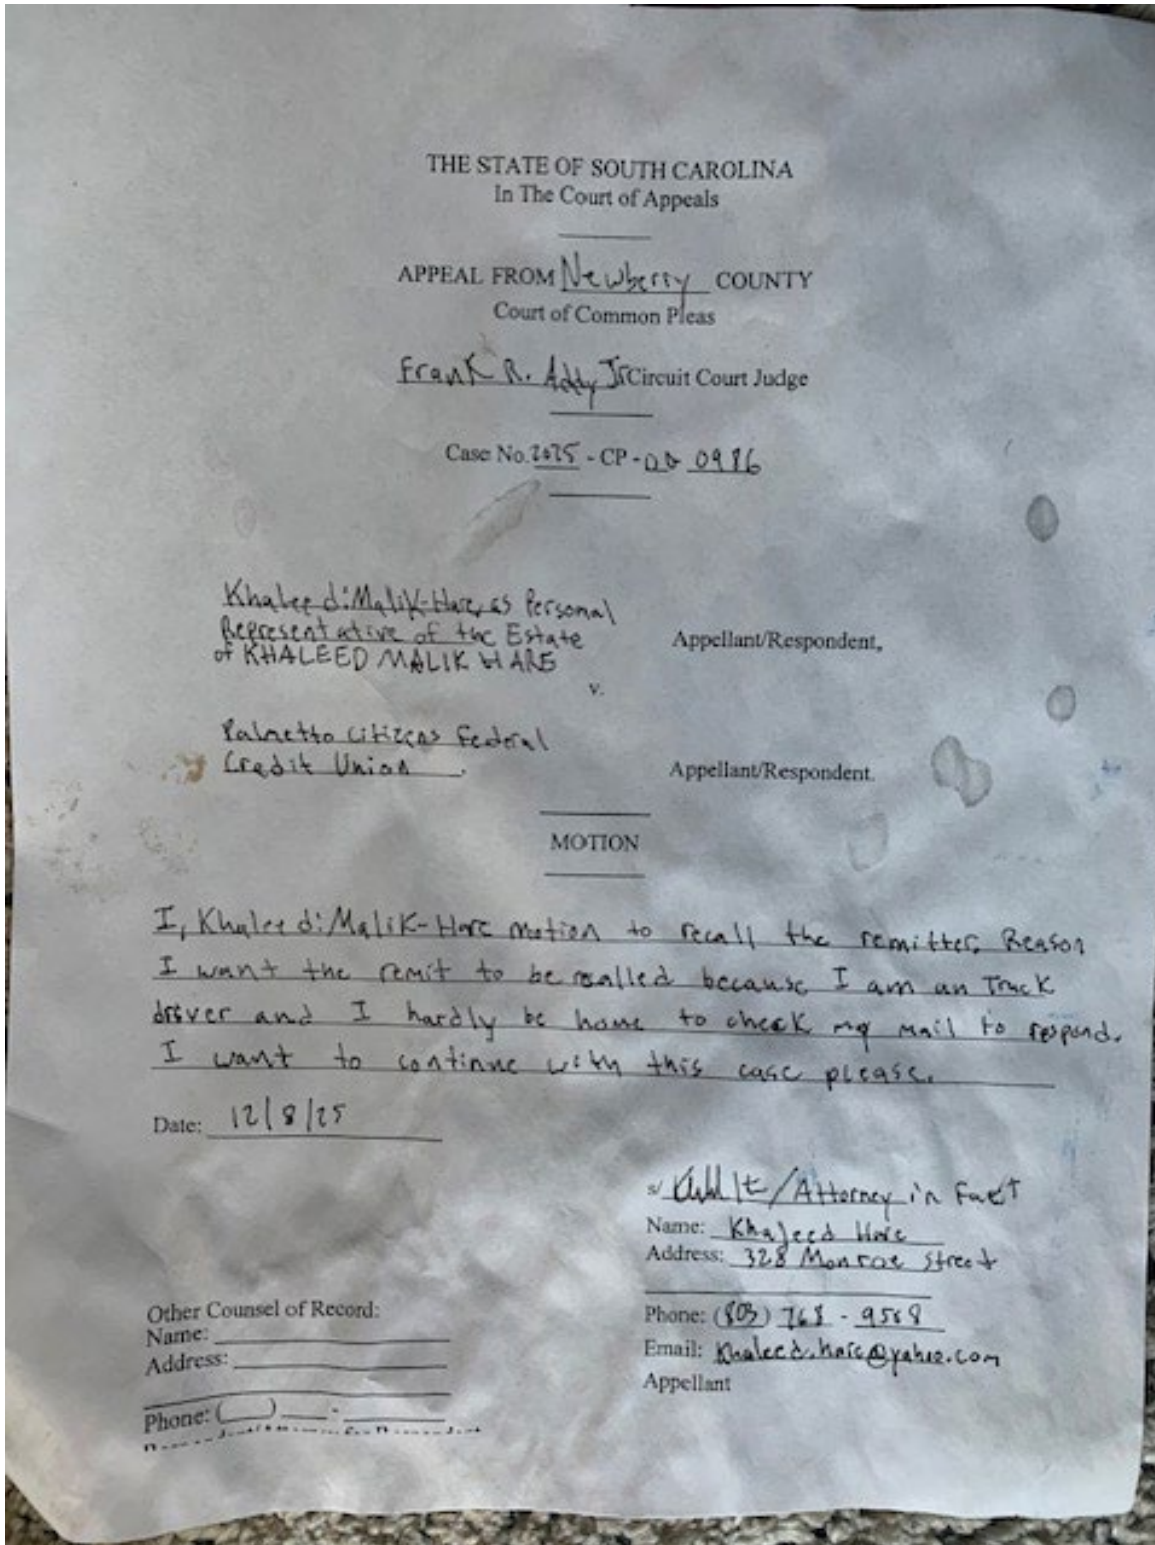 THE STATE OF SOUTH CAROLINA
In The Court of Appeals
APPEAL FROM Newberry COUNTY
Court of Common Pleas
Frank R. Addy Jr Circuit Court Judge
Case No. 2025 - CP - 0986
Khaleed:Malik-Hare, as Personal
Representative of the Estate
of KHALEED MALIK HARE
Appellant/Respondent,
v.
Palmetto Citizens Federal
Credit Union.
Appellant/Respondent.
MOTION
I, Khaleed:Malik-Hare motion to recall the remitter. Reason
I want the remit to be recalled because I am an Truck
driver and I hardly be home to check my mail to respond.
I want to continue with this case please.
Date: 12/8/25
s/ /Attorney in Fact
Name: Khaleed Hare
Address: 328 Monroe Street
Phone: (803) 768 - 9568
Email: Khaleed.hare@yahoo.com
Appellant
Other Counsel of Record:
Name:
Address:
Phone: ( ) -